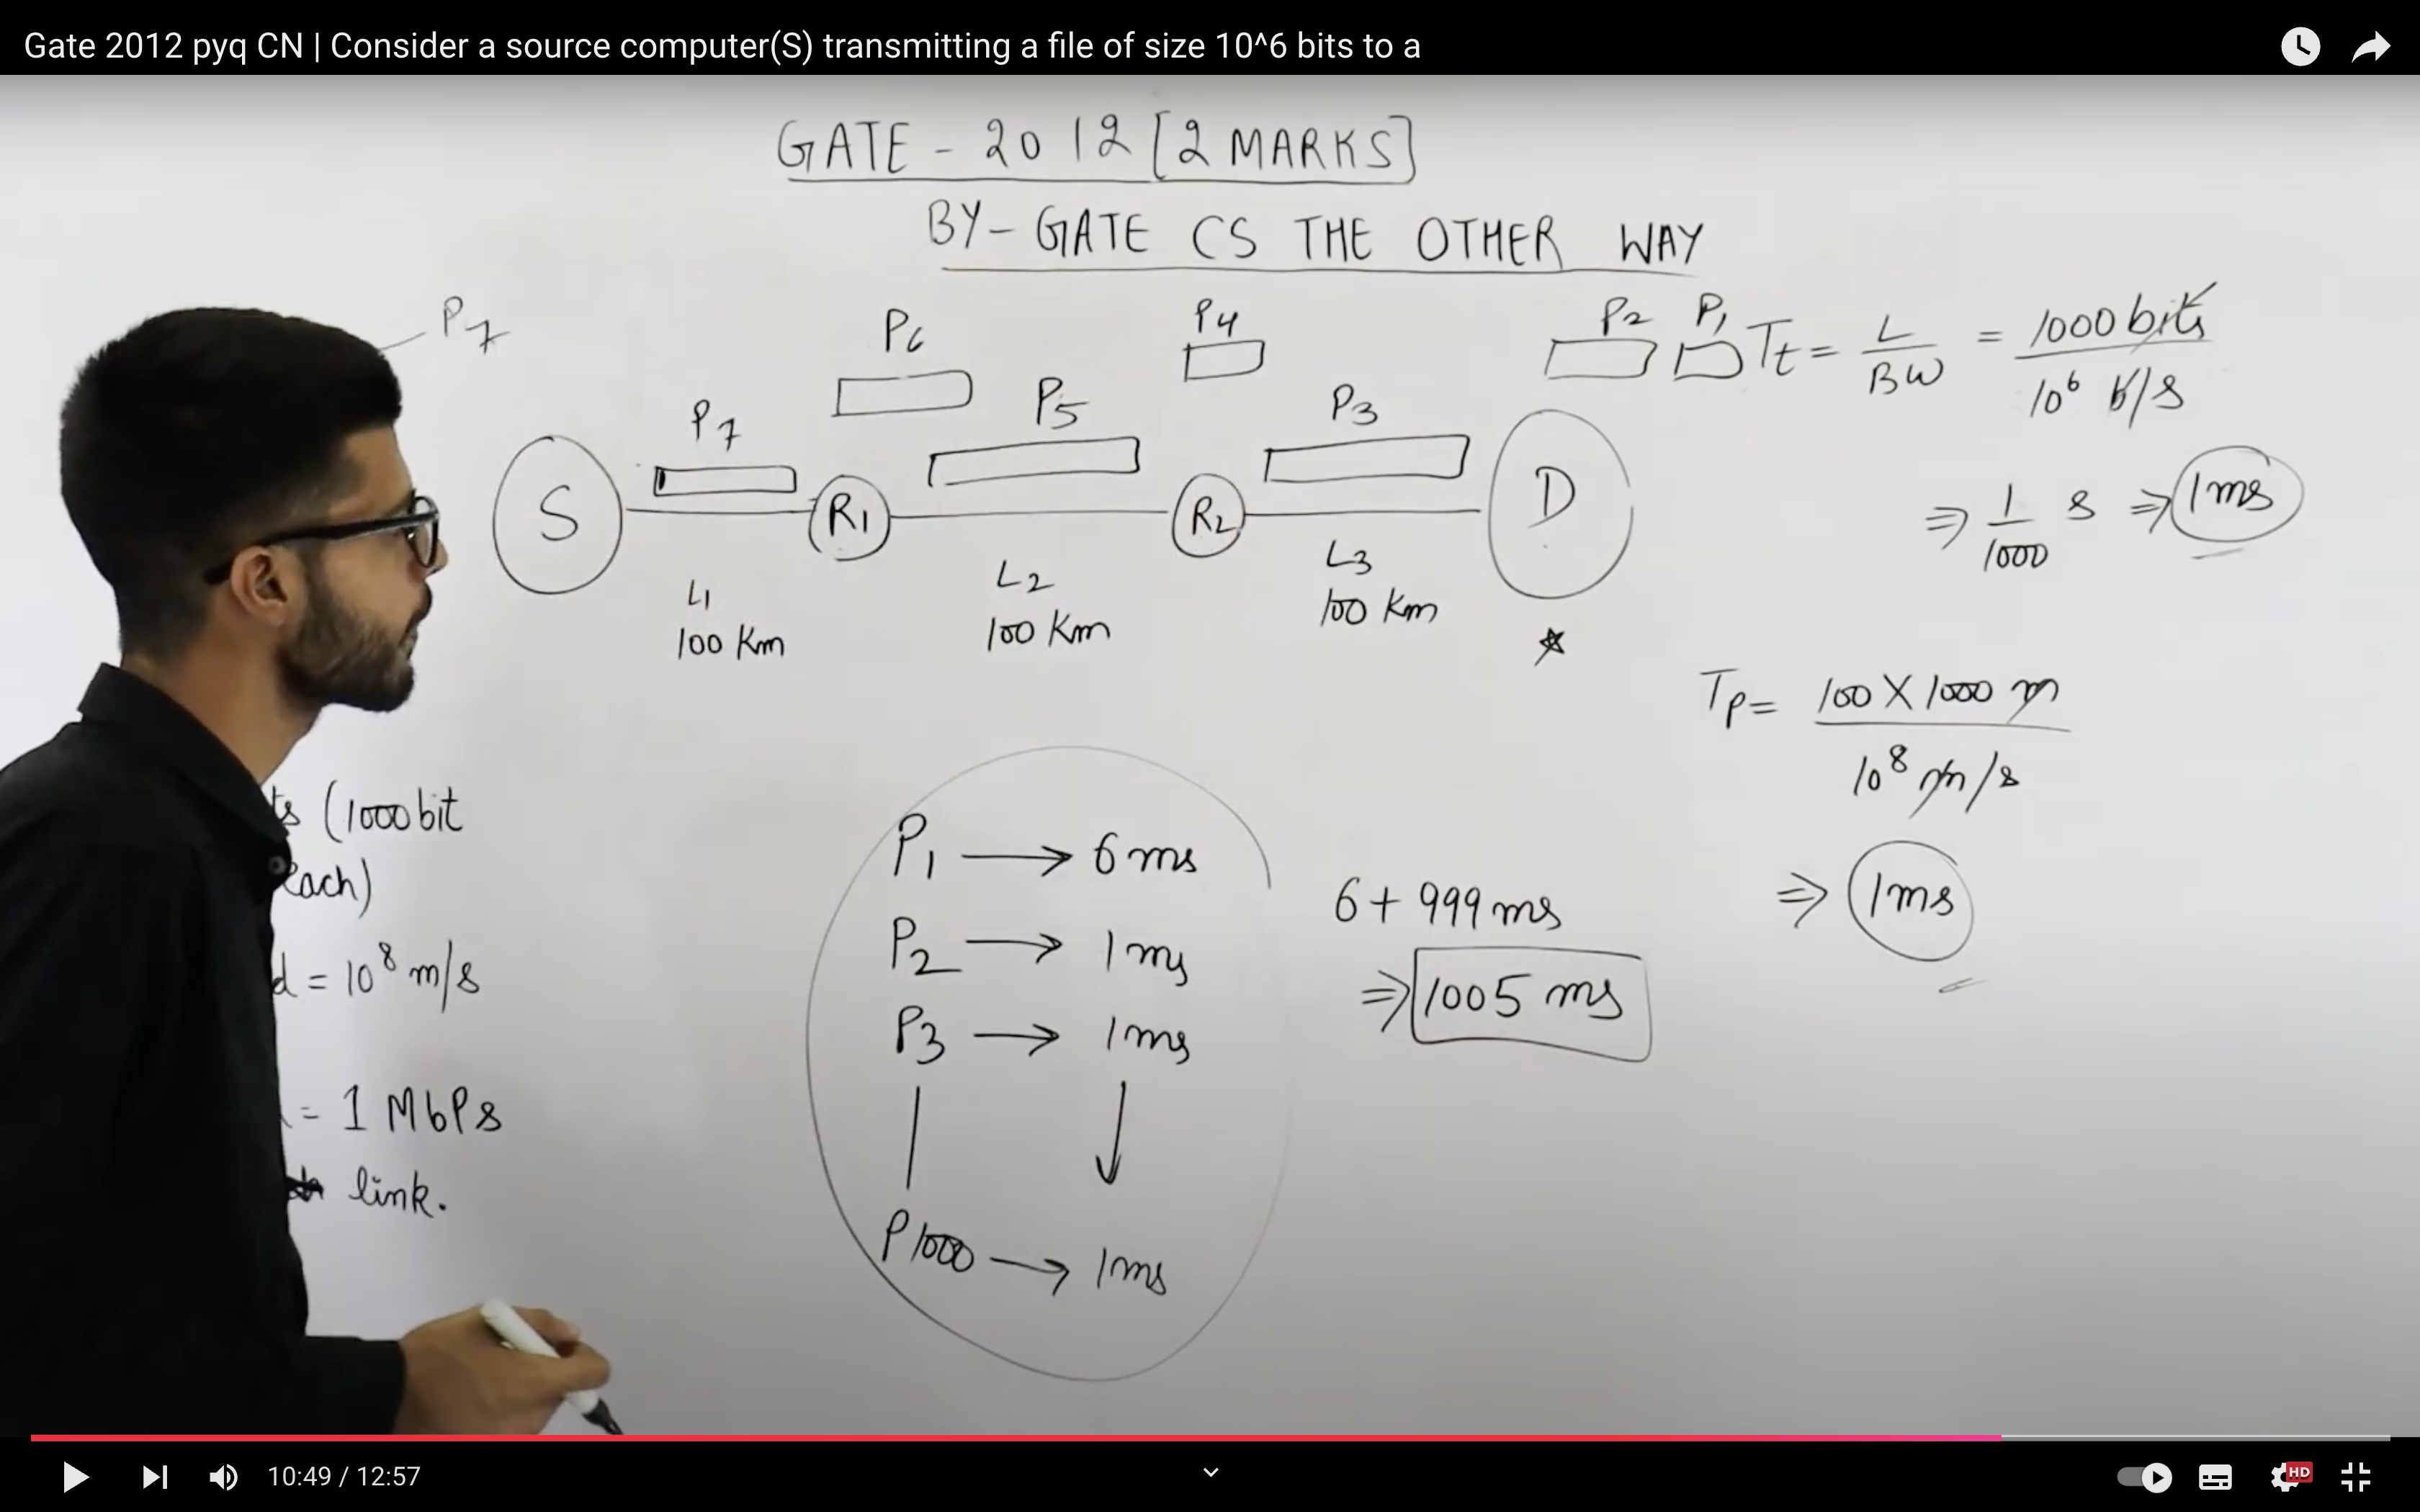 Gate 2012 pyq CN | Consider a source computer(S) transmitting a file of size 10^6 bits to a
GATE - 2012 [2 MARKS]
BY- GATE CS THE OTHER WAY
P7
P6
P4
P2 P1
Tt = L/BW = 1000 bits/10⁶ b/s
P7
P5
P3
S
R1
R2
D
⇒ 1/1000 s ⇒ 1ms
L1
100 Km
L2
100 Km
L3
100 Km
Tp = 100 X 1000 m/10⁸ m/s
⇒ 1ms
ts (1000 bit
each)
d = 10⁸ m/s
= 1 MbPs
link.
P1 → 6 ms
P2 → 1 ms
P3 → 1 ms
P1000 → 1ms
6 + 999 ms
⇒ 1005 ms
10:49 / 12:57
HD